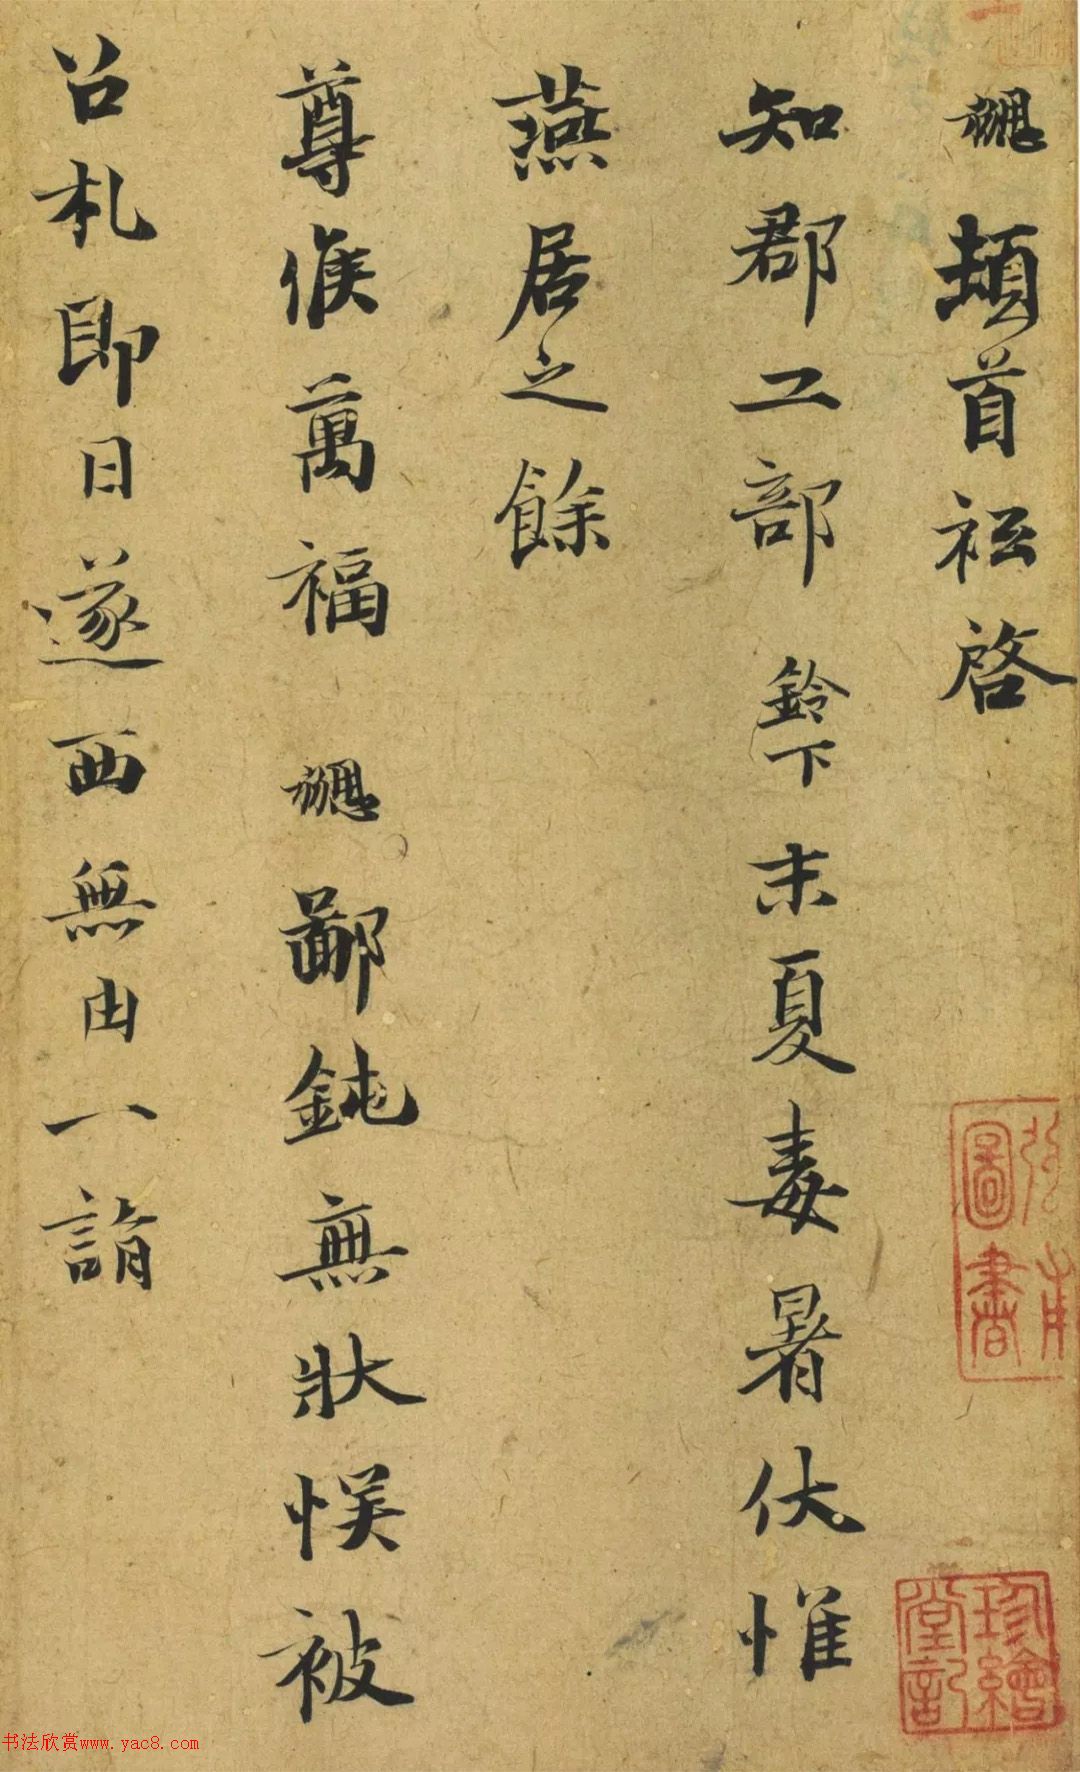 勰頓首祗啓
知郡工部 鈴下末夏毒暑伏惟
燕居之餘
尊候萬福 勰鄙鈍無狀悮被
召札即日遂西無由一詣
圖書
珍繪堂記
书法欣赏www.yac8.com